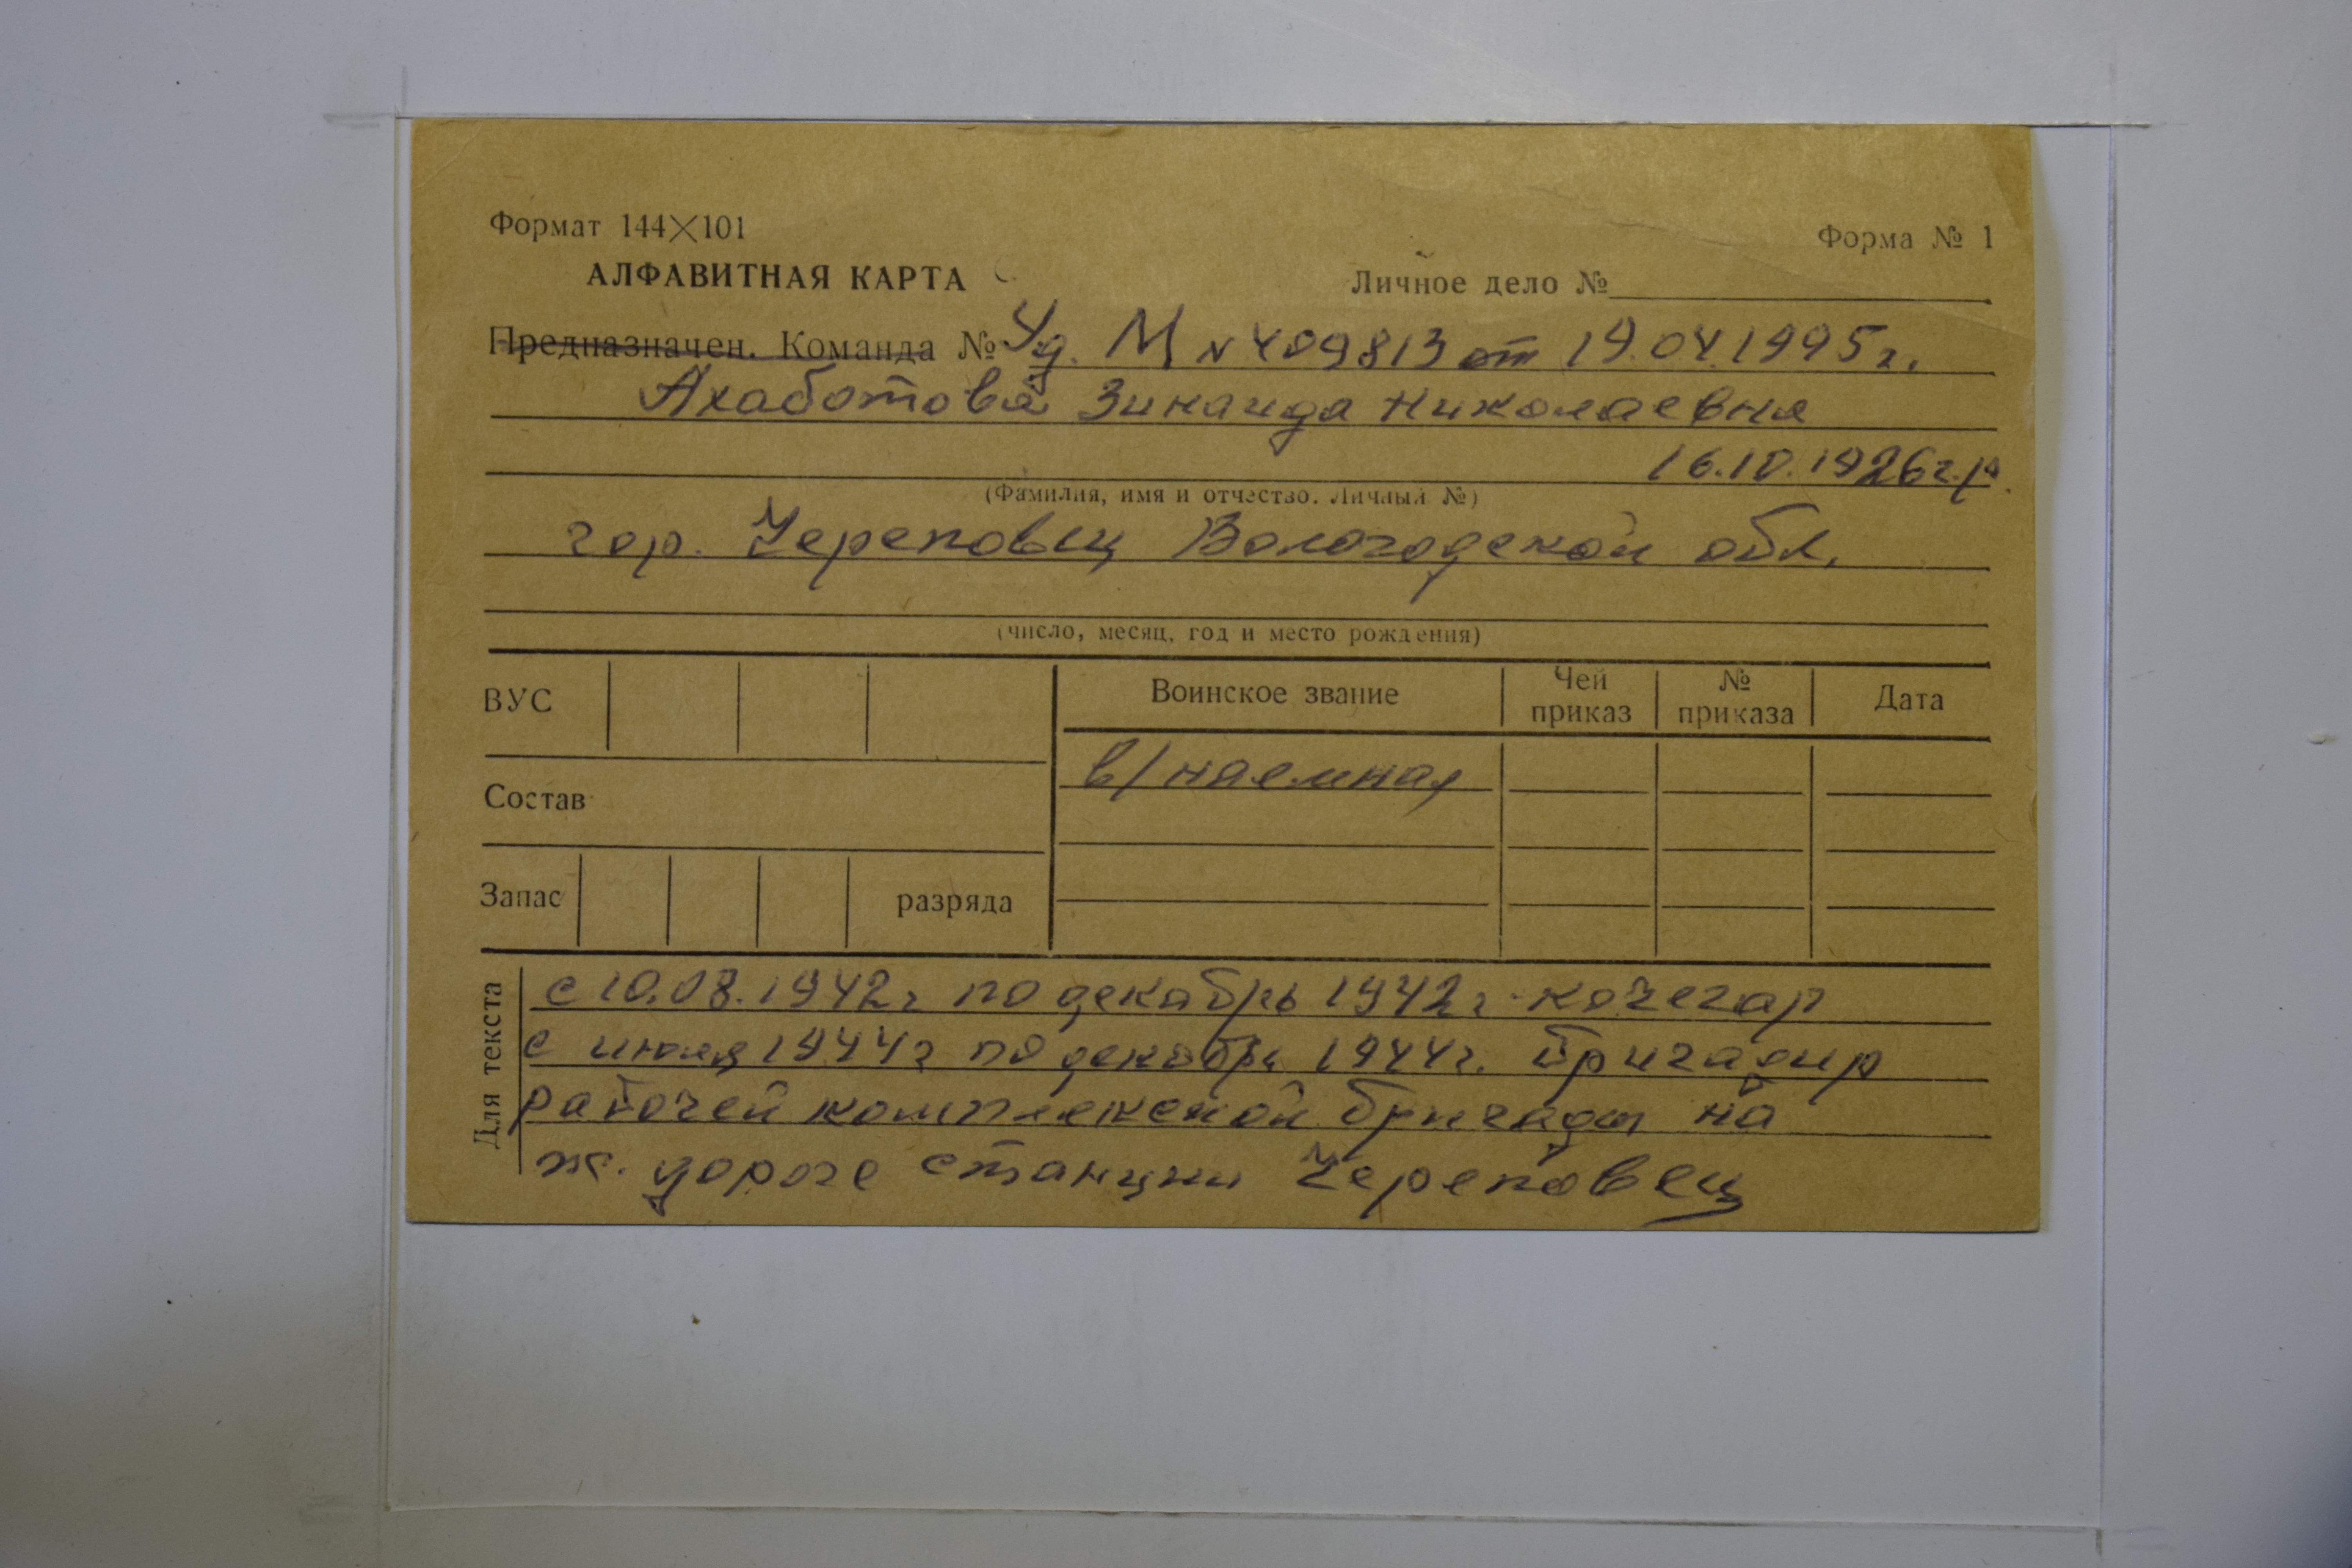 Формат 144×101
Форма № 1
АЛФАВИТНАЯ КАРТА
Личное дело №
Предназначен. Команда № Уд. М № 409813 от 19.04.1995г.
Ахаботова Зинаида Николаевна
16.10.1926г.р.
(Фамилия, имя и отчество. Личный №)
гор. Череповец Вологодской обл.
(число, месяц, год и место рождения)
ВУС
Воинское звание
Чей приказ
№ приказа
Дата
в/наемная
Состав
Запас
разряда
Для текста
с 10.08.1942г по декабрь 1942г. кочегар
с июля 1944г по декабрь 1944г. бригадир
рабочей комплексной бригады на
ж. дороге станции Череповец